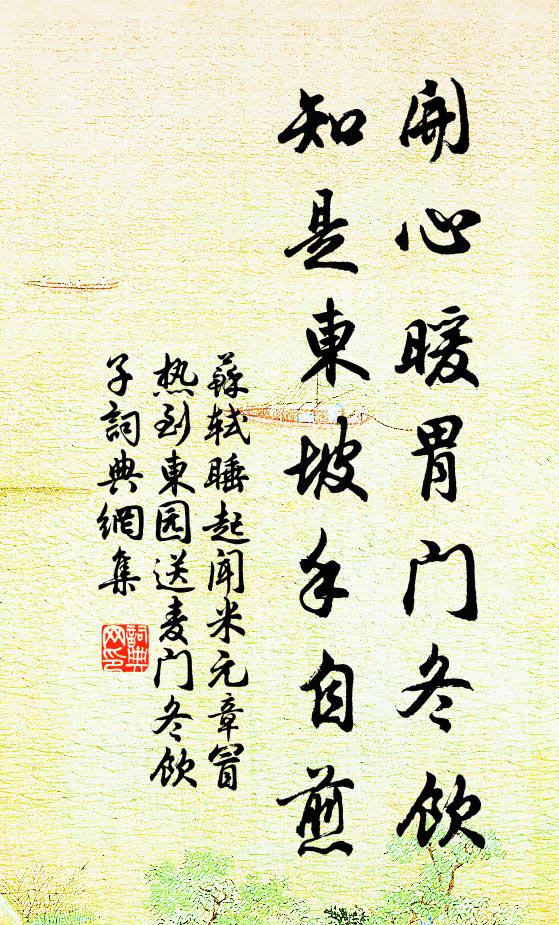 開心暖胃门冬飲
知是東坡手自煎
蘇軾睡起闻米元章冒
热到東园送麦门冬飲
子詞典網集
詞典
网印